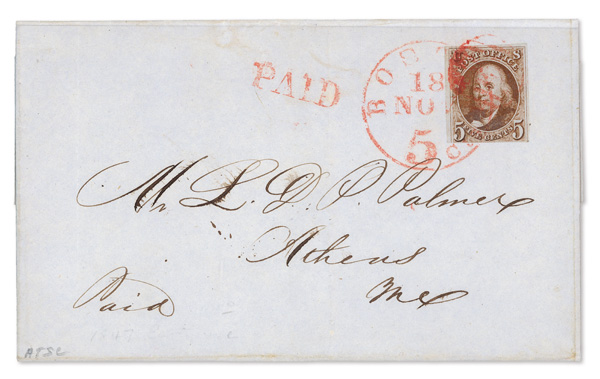 PAID
BOST
18
NO
5
C
POST OFFICE
5 FIVE CENTS 5
Mr L. D. P. Palmer
Athens
Me
Paid
ATSC